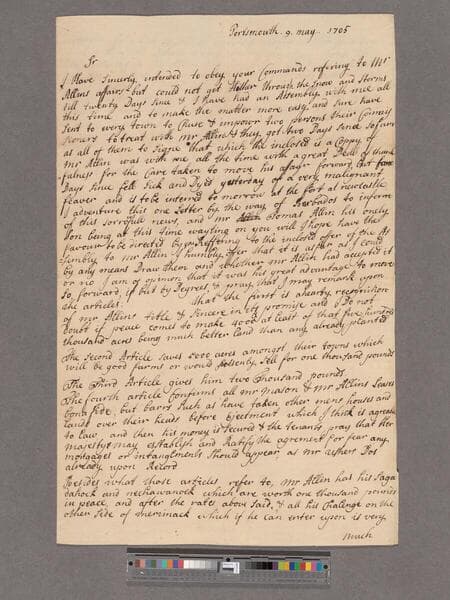 Portsmouth. 9. may. 1705
Sr
I Have sincerly intended to obey your Commands refering to Mr
Allins affairs but could not get hither through the snow and storms
till twenty Days sine & I Have had an Assembly with mee all
this time and to make the matter more easy and sure have
sent to every town to Chuse & impower two persons their Comiss
ioners to treat with mr Allin & they got two Days send so farr
as all of them to signe that which the inclosed is a Coppy of
Mr Allin was with me all the time with a great Deall of thank
fulness for the Care taken to move his afayr forward, but
Days sine fell Sick and Dyed yesterday of a very malignant
feaver and is to be interred to morrow at the fort at newcastle
I adventure this one letter by the way of Barbados to inform
of this sorrofull news, and mr Thomas Allin his only
son being at this time wayting on you will I hope have the
favour to be directed by you Reffering to the inclosed offer of the As
sembly to mr Allin I humbly offer that it is as far as I could
by any means Draw them and whether mr Allin had accepted it
or no I am of opinion that it was his great advantage to move
so forward, if but by Degrees, & pray that I may remark upon
the articles. That the first is a hearty recognition
of mr Allins title & sincere in its promise and I Do not
doubt if peace comes to make 4000 at least of that five hundred
thousand acres being much better land than any already planted
The Second Article saves 5000 acres amongst their towns which
will be good farms or would presently sell for one thousand pounds
The Third Article gives him two Thousand pounds
The fourth article Confirms all mr Mason & Mr Allins Leases
bona fide, but barrs such as have taken other mens houses and
lands over their heads before Ejectment which I think is agreeable
to law and then his money is secured & the tenants pray that Her
Majesty may establish and Ratify the agreement for fear any
mortgages or intanglments should appear as mr usher Dos
already upon Record
Besides what those articles refer to, mr Allin has his Saga
dahock and nechawanock which are worth one thousand pounds
in peace and after the rates above said, & all his Challenge on the
other side of merrimack which if he can enter upon is very
much